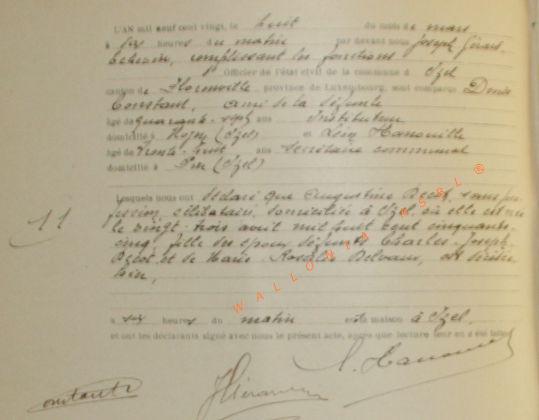 L'AN mil neuf cent vingt, le huit du mois de mars
à six heures du matin par devant nous Joseph Gérard
Echevin, remplissant les fonctions
Officier de l'état civil de la commune d' Izel
canton de Florenville, province de Luxembourg, sont comparus Denis
Constant, ami de la défunte
âgé de quarante-sept ans Instituteur
domicilié à Moyen (Izel) et Léon Hanouille
âgé de trente-huit ans secrétaire communal
domicilié à Pin (Izel)
Lesquels nous ont déclaré que Augustine Bécot, sans pro-
fession, célibataire, domiciliée à Izel, où elle est née
le vingt-trois avril mil huit cent cinquante-
cinq, fille des époux défunts Charles-Joseph
Bécot et de Marie-Rosalie Delvaux, est décédée
hier,
11
WALLONIA ASBL ®
à six heures du matin en sa maison à Izel
et ont les déclarants signé avec nous le présent acte, après que lecture leur en a été faite
Constant
L. Hanouille